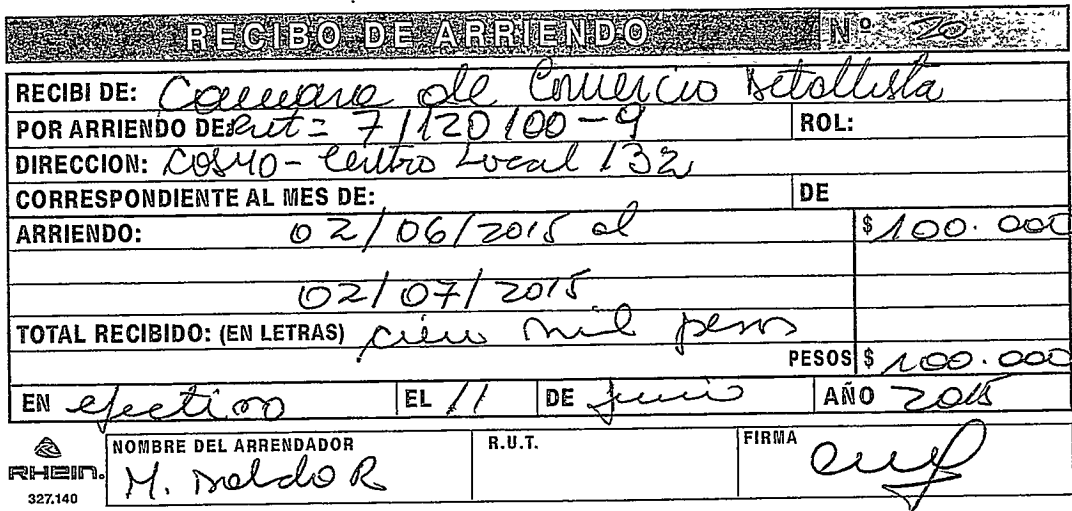 RECIBO DE ARRIENDO Nº 20
RECIBI DE: Camara de Comercio Detallista
POR ARRIENDO DE: Rut = 71120100-9 ROL:
DIRECCION: COSMO-Centro Local 132
CORRESPONDIENTE AL MES DE: DE
ARRIENDO: 02/06/2015 al $ 100.000
02/07/2015
TOTAL RECIBIDO: (EN LETRAS) cien mil pesos
PESOS $ 100.000
EN efectivo EL 11 DE junio AÑO 2015
NOMBRE DEL ARRENDADOR R.U.T. FIRMA
RHEIN. M. R
327.140